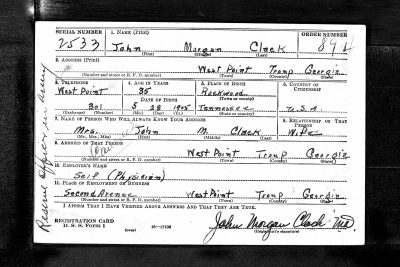 SERIAL NUMBER 1. NAME (Print) ORDER NUMBER
2533 John Morgan Clack 894
(First) (Middle) (Last)
2. ADDRESS (Print)
West Point Troup Georgia
(Number and street or R. F. D. number) (Town) (County) (State)
3. TELEPHONE 4. AGE IN YEARS 5. PLACE OF BIRTH 6. COUNTRY OF CITIZENSHIP
West Point 35 Rockwood
DATE OF BIRTH (Town or county)
301 5 28 1905 Tennessee U.S.A.
(Exchange) (Number) (Mo.) (Day) (Yr.) (State or country)
7. NAME OF PERSON WHO WILL ALWAYS KNOW YOUR ADDRESS 8. RELATIONSHIP OF THAT PERSON
Mrs. John M. Clack Wife
(Mr., Mrs., Miss) (First) (Middle) (Last)
9. ADDRESS OF THAT PERSON
West Point Troup Georgia
(Number and street or R. F. D. number) (Town) (County) (State)
10. EMPLOYER'S NAME
Self (Physician)
11. PLACE OF EMPLOYMENT OR BUSINESS
Second Avenue West Point Troup Georgia
(Number and street or R. F. D. number) (Town) (County) (State)
I AFFIRM THAT I HAVE VERIFIED ABOVE ANSWERS AND THAT THEY ARE TRUE.
REGISTRATION CARD
D. S. S. FORM 1 (over) 16—17105 John Morgan Clack MD.
(Registrant's signature)
Reserve Officer in Army